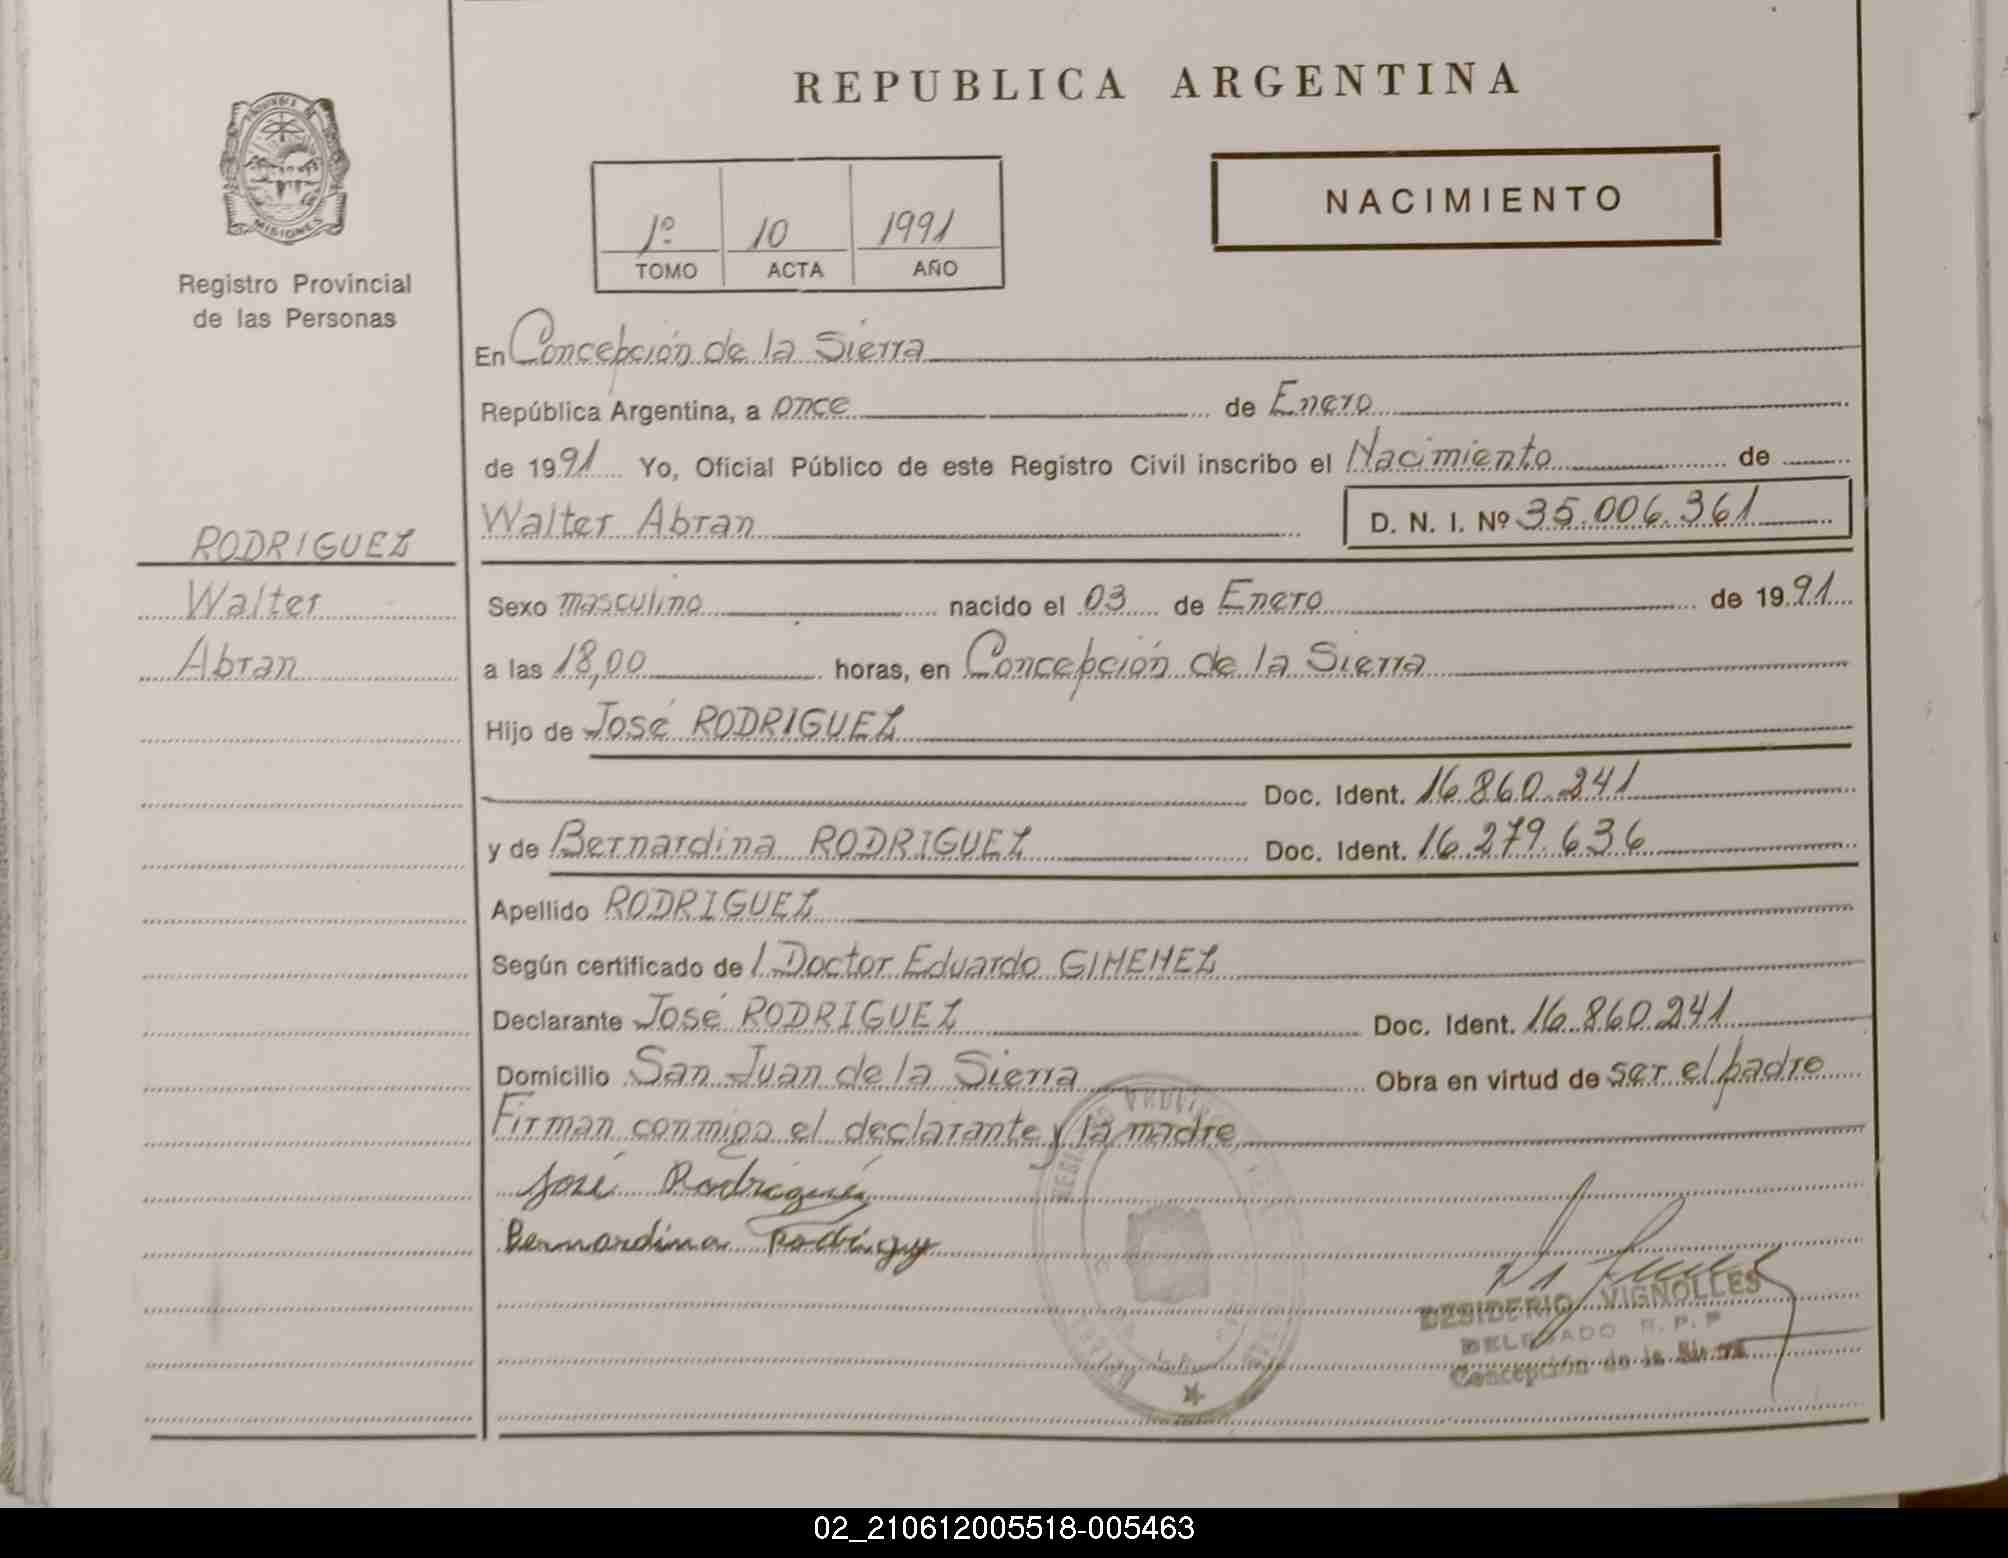 REPUBLICA ARGENTINA
PROVINCIA DE
MISIONES
Registro Provincial
de las Personas
1º 10 1991
TOMO ACTA AÑO
NACIMIENTO
En Concepción de la Sierra
República Argentina, a once de Enero
de 1991 Yo, Oficial Público de este Registro Civil inscribo el Nacimiento de
Walter Abran D. N. I. Nº 35.006.361
RODRIGUEZ
Walter
Abran
Sexo masculino nacido el 03 de Enero de 1991
a las 18,00 horas, en Concepción de la Sierra
Hijo de José RODRIGUEZ
Doc. Ident. 16.860.241
y de Bernardina RODRIGUEZ Doc. Ident. 16.279.636
Apellido RODRIGUEZ
Según certificado de l Doctor Eduardo GIMENEZ
Declarante José RODRIGUEZ Doc. Ident. 16.860.241
Domicilio San Juan de la Sierra Obra en virtud de ser el padre
Firman conmigo el declarante y la madre
José Rodrigués
Bernardina Rodriguy
DESIDERIO VIGNOLLES
DELEGADO R. P. P
Concepción de la Sierra
02_210612005518-005463